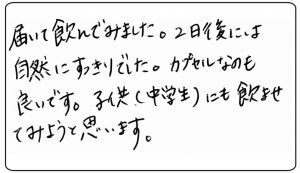 届いて飲んでみました。2日後には
自然にすっきりでした。カプセルなのも
良いです。子供(中学生)にも飲ませ
てみようと思います。